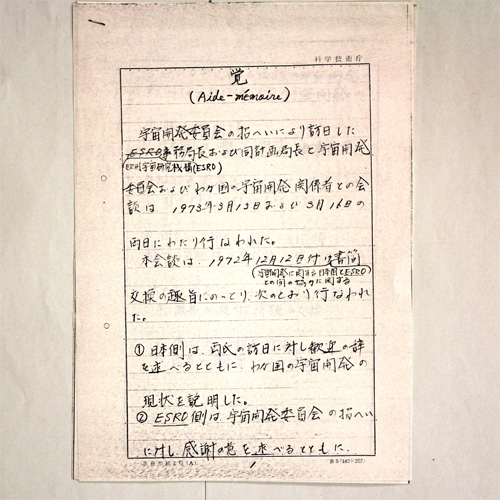 科学技術庁
覚
(Aide-mémoire)
宇宙開発委員会の招へいにより訪日した
ESRO事務局長および同計画局長と宇宙開発
欧州宇宙研究機構(ESRO)
委員会およびわが国の宇宙開発関係者との会
談は、1973年3月15日および3月16日の
両日にわたり行なわれた。
本会談は、1972年12月12日付け書簡
(宇宙開発に関する日本国とESRO
との間の協力に関する
交換の趣旨にのっとり、次のとおり行なわれ
た。
① 日本側は、両氏の訪日に対し歓迎の辞
を述べるとともに、わが国の宇宙開発の
現状を説明した。
② ESRO側は、宇宙開発委員会の招へい
に対し、感謝の意を述べるとともに、